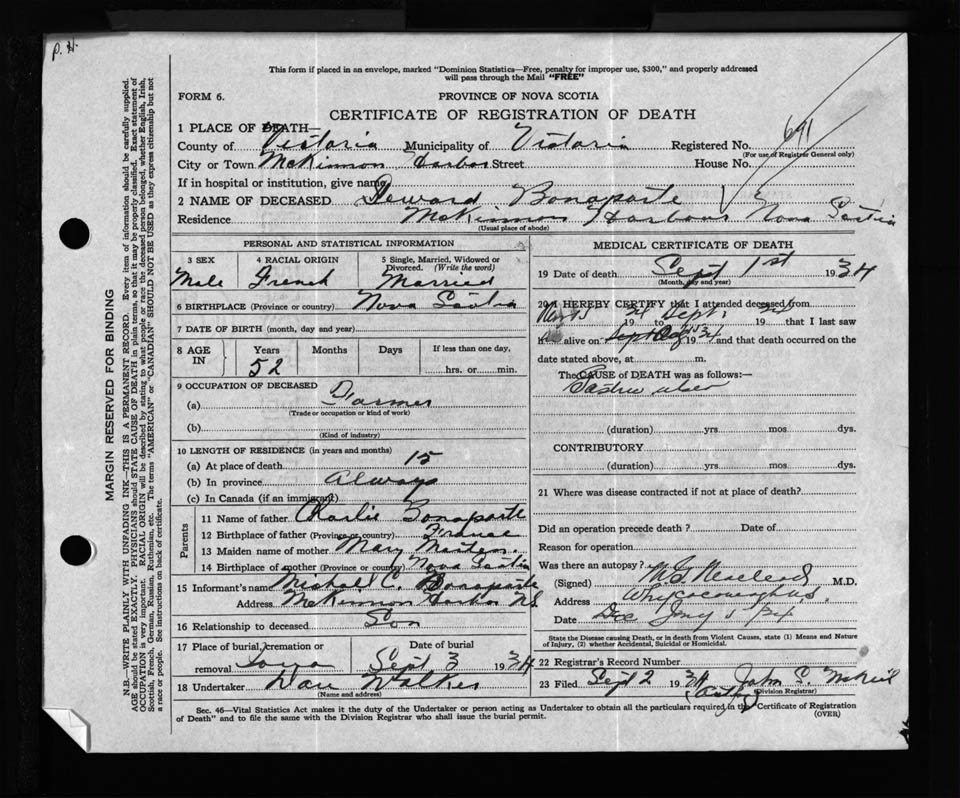 P. H.
This form if placed in an envelope, marked "Dominion Statistics—Free, penalty for improper use, $300," and properly addressed
will pass through the Mail "FREE"
FORM 6.
PROVINCE OF NOVA SCOTIA
CERTIFICATE OF REGISTRATION OF DEATH
1 PLACE OF DEATH—
County of Victoria Municipality of Victoria Registered No. 691
(For use of Registrar General only)
City or Town McKinnon Harbor Street House No.
If in hospital or institution, give name
2 NAME OF DECEASED Bonaparte
Residence McKinnon Harbour Nova Scotia
(Usual place of abode)
PERSONAL AND STATISTICAL INFORMATION
3 SEX 4 RACIAL ORIGIN 5 Single, Married, Widowed or
Divorced. (Write the word)
Male French Married
6 BIRTHPLACE (Province or country) Nova Scotia
7 DATE OF BIRTH (month, day and year)
8 AGE IN Years Months Days If less than one day,
52 hrs. or min.
9 OCCUPATION OF DECEASED
(a) Farmer
(Trade or occupation or kind of work)
(b)
(Kind of industry)
10 LENGTH OF RESIDENCE (in years and months)
(a) At place of death 15
(b) In province always
(c) In Canada (if an immigrant)
Parents
11 Name of father Charlie Bonaparte
12 Birthplace of father (Province or country) France
13 Maiden name of mother Mary
14 Birthplace of mother (Province or country) Nova Scotia
15 Informant's name Michael C. Bonaparte
Address McKinnon Harbor N.S.
16 Relationship to deceased Son
17 Place of burial, cremation or Date of burial
removal Iona Sept 3 1934
18 Undertaker Dan Walker
(Name and address)
MEDICAL CERTIFICATE OF DEATH
19 Date of death Sept 1st 1934
(Month, day and year)
20 I HEREBY CERTIFY that I attended deceased from
19 to Sept. 19 that I last saw
alive on 1934 and that death occurred on the
date stated above, at m.
The CAUSE of DEATH was as follows:—
ulcer
(duration) yrs mos dys.
CONTRIBUTORY
(duration) yrs mos dys.
21 Where was disease contracted if not at place of death?
Did an operation precede death? Date of
Reason for operation
Was there an autopsy?
(Signed) M.D.
Address
Date
State the Disease causing Death, or in death from Violent Causes, state (1) Means and Nature
of Injury, (2) whether Accidental, Suicidal or Homicidal.
22 Registrar's Record Number
23 Filed Sept 2 1934 John S. McNeil
(Acting) Division Registrar)
Sec. 46—Vital Statistics Act makes it the duty of the Undertaker or person acting as Undertaker to obtain all the particulars required in the Certificate of Registration
of Death" and to file the same with the Division Registrar who shall issue the burial permit. (OVER)
MARGIN RESERVED FOR BINDING
N.B.—WRITE PLAINLY WITH UNFADING INK—THIS IS A PERMANENT RECORD. Every item of information should be carefully supplied.
AGE should be stated EXACTLY. PHYSICIANS should STATE CAUSE OF DEATH in plain terms, so that it may be properly classified. Exact statement of
OCCUPATION is very important. RACIAL ORIGIN will be described by stating to what people or race the deceased person belonged, whether English, Irish,
Scottish, French, German, Russian, Ruthenian, etc. The terms "AMERICAN" or "CANADIAN" SHOULD NOT BE USED as they express citizenship but not
a race or people. See instructions on back of certificate.